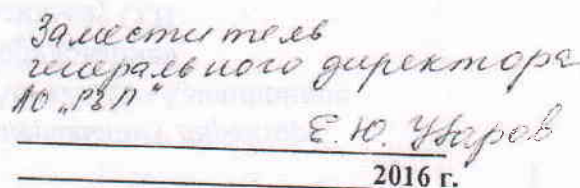 Заместитель
генерального директора
АО „РЭЛ"
Е. Ю.
2016 г.